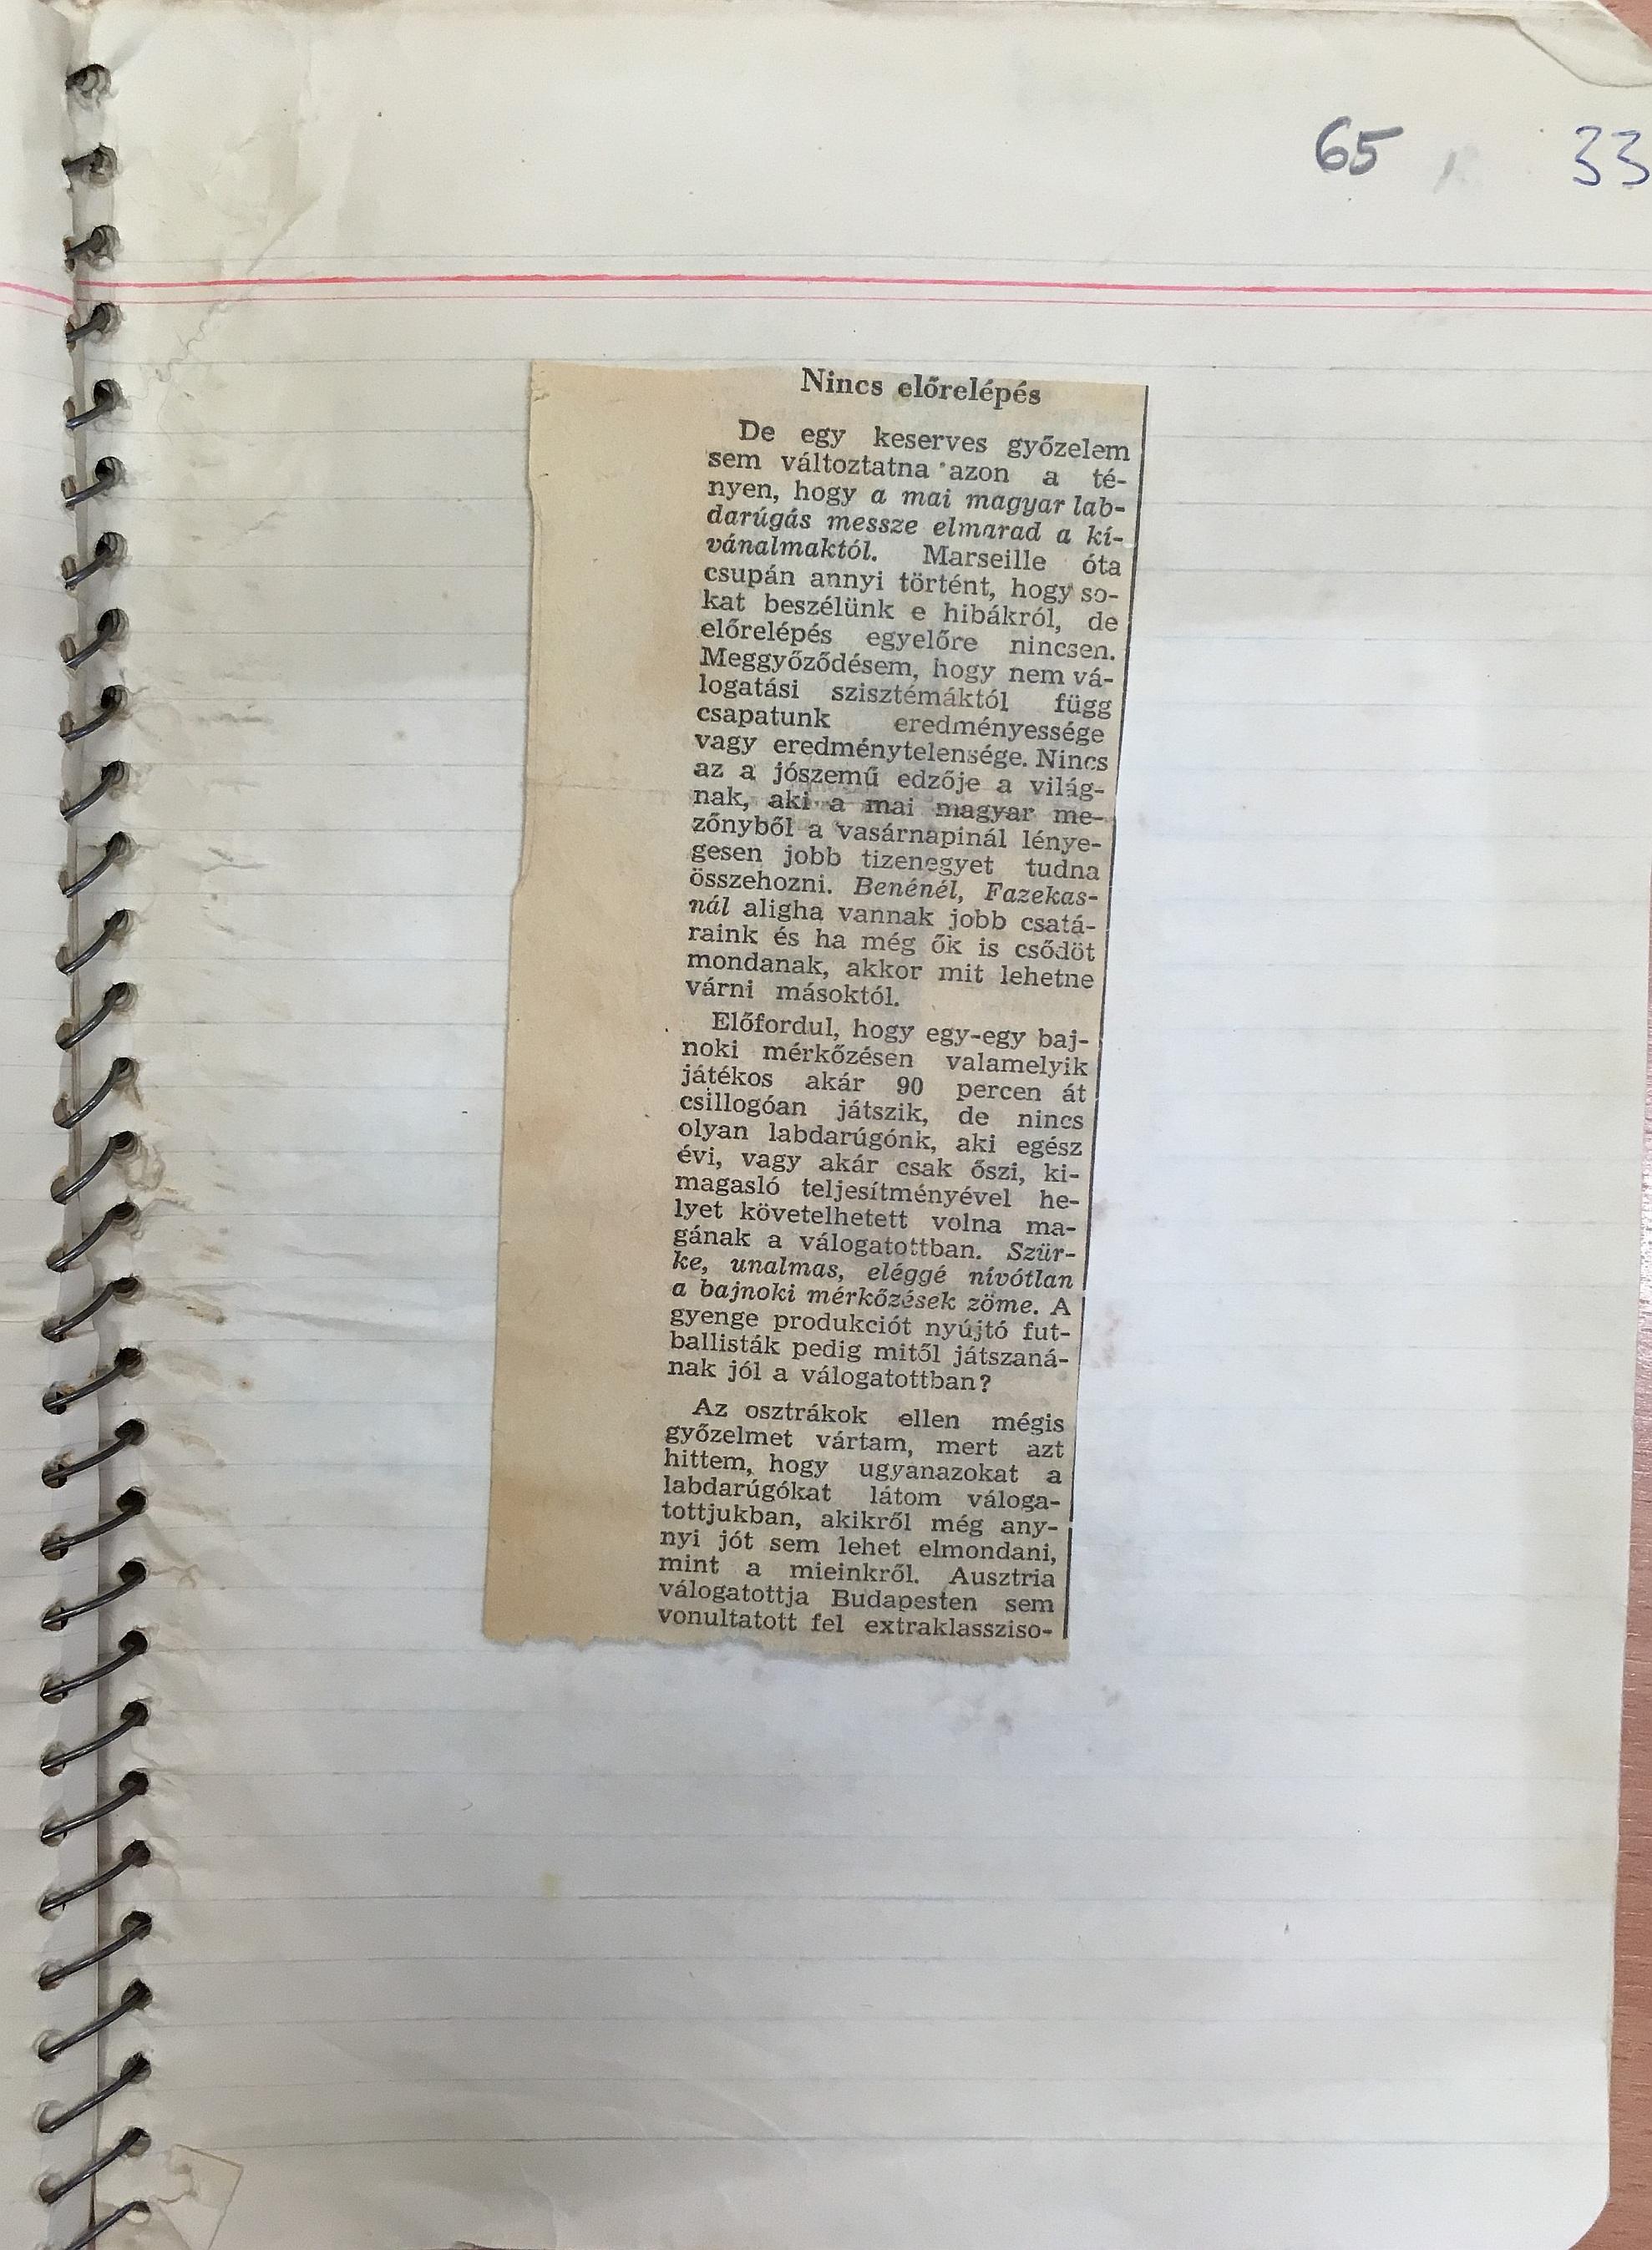 65 33
Nincs előrelépés
De egy keserves győzelem
sem változtatna azon a té-
nyen, hogy a mai magyar lab-
darúgás messze elmarad a kí-
vánalmaktól. Marseille óta
csupán annyi történt, hogy so-
kat beszélünk e hibákról, de
előrelépés egyelőre nincsen.
Meggyőződésem, hogy nem vá-
logatási szisztémáktól függ
csapatunk eredményessége
vagy eredménytelensége. Nincs
az a jószemű edzője a világ-
nak, aki a mai magyar me-
zőnyből a vasárnapinál lénye-
gesen jobb tizenegyet tudna
összehozni. Benénél, Fazekas-
nál aligha vannak jobb csatá-
raink és ha még ők is csődöt
mondanak, akkor mit lehetne
várni másoktól.
Előfordul, hogy egy-egy baj-
noki mérkőzésen valamelyik
játékos akár 90 percen át
csillogóan játszik, de nincs
olyan labdarúgónk, aki egész
évi, vagy akár csak őszi, ki-
magasló teljesítményével he-
lyet követelhetett volna ma-
gának a válogatottban. Szür-
ke, unalmas, eléggé nívótlan
a bajnoki mérkőzések zöme. A
gyenge produkciót nyújtó fut-
ballisták pedig mitől játszaná-
nak jól a válogatottban?
Az osztrákok ellen mégis
győzelmet vártam, mert azt
hittem, hogy ugyanazokat a
labdarúgókat látom váloga-
tottjukban, akikről még any-
nyi jót sem lehet elmondani,
mint a mieinkről. Ausztria
válogatottja Budapesten sem
vonultatott fel extraklassziso-